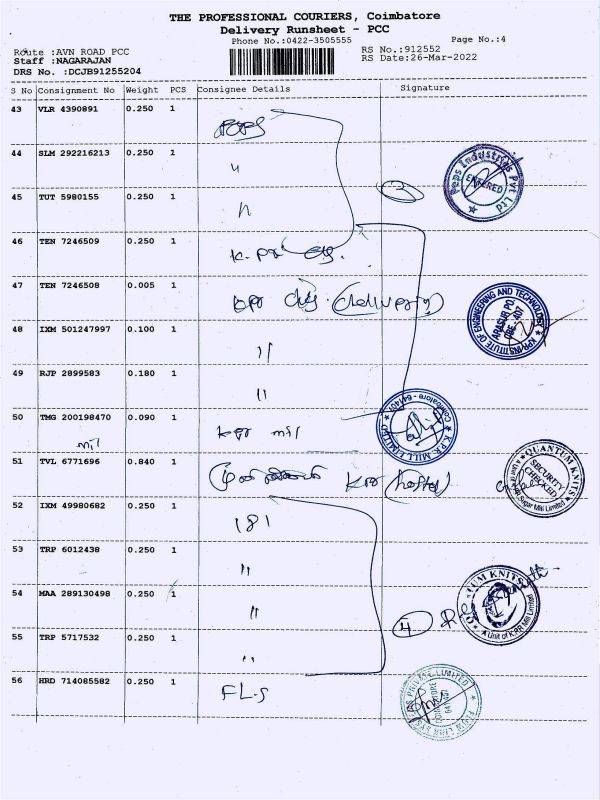 THE PROFESSIONAL COURIERS, Coimbatore
Delivery Runsheet - PCC
Phone No.:0422-3505555 Page No.:4
Route :AVN ROAD PCC RS No.:912552
Staff :NAGARAJAN RS Date:26-Mar-2022
DRS No. :DCJB91255204
S No Consignment No Weight PCS Consignee Details Signature
43 VLR 4390891 0.250 1
44 SLM 292216213 0.250 1 "
Peps Industries Pvt Ltd
ENTERED
45 TUT 5980155 0.250 1 "
46 TEN 7246509 0.250 1
47 TEN 7246508 0.005 1
KPR INSTITUTE OF ENGINEERING AND TECHNOLOGY
ARASUR PO.
CBE - 407
48 IXM 501247997 0.100 1 "
49 RJP 2899583 0.180 1 "
50 TMG 200198470 0.090 1 KPR mil
mil
K.P.R. MILL LIMITED
Coimbatore - 641407
51 TVL 6771696 0.840 1 KPR (hostel)
QUANTUM KNITS
SECURITY CHECKED
52 IXM 49980682 0.250 1 181
53 TRP 6012438 0.250 1 "
54 MAA 289130498 0.250 1 "
QUANTUM KNITS
Unit of K.P.R Mill Limited
4
55 TRP 5717532 0.250 1 "
56 HRD 714085582 0.250 1 FL-S
COIMBATORE